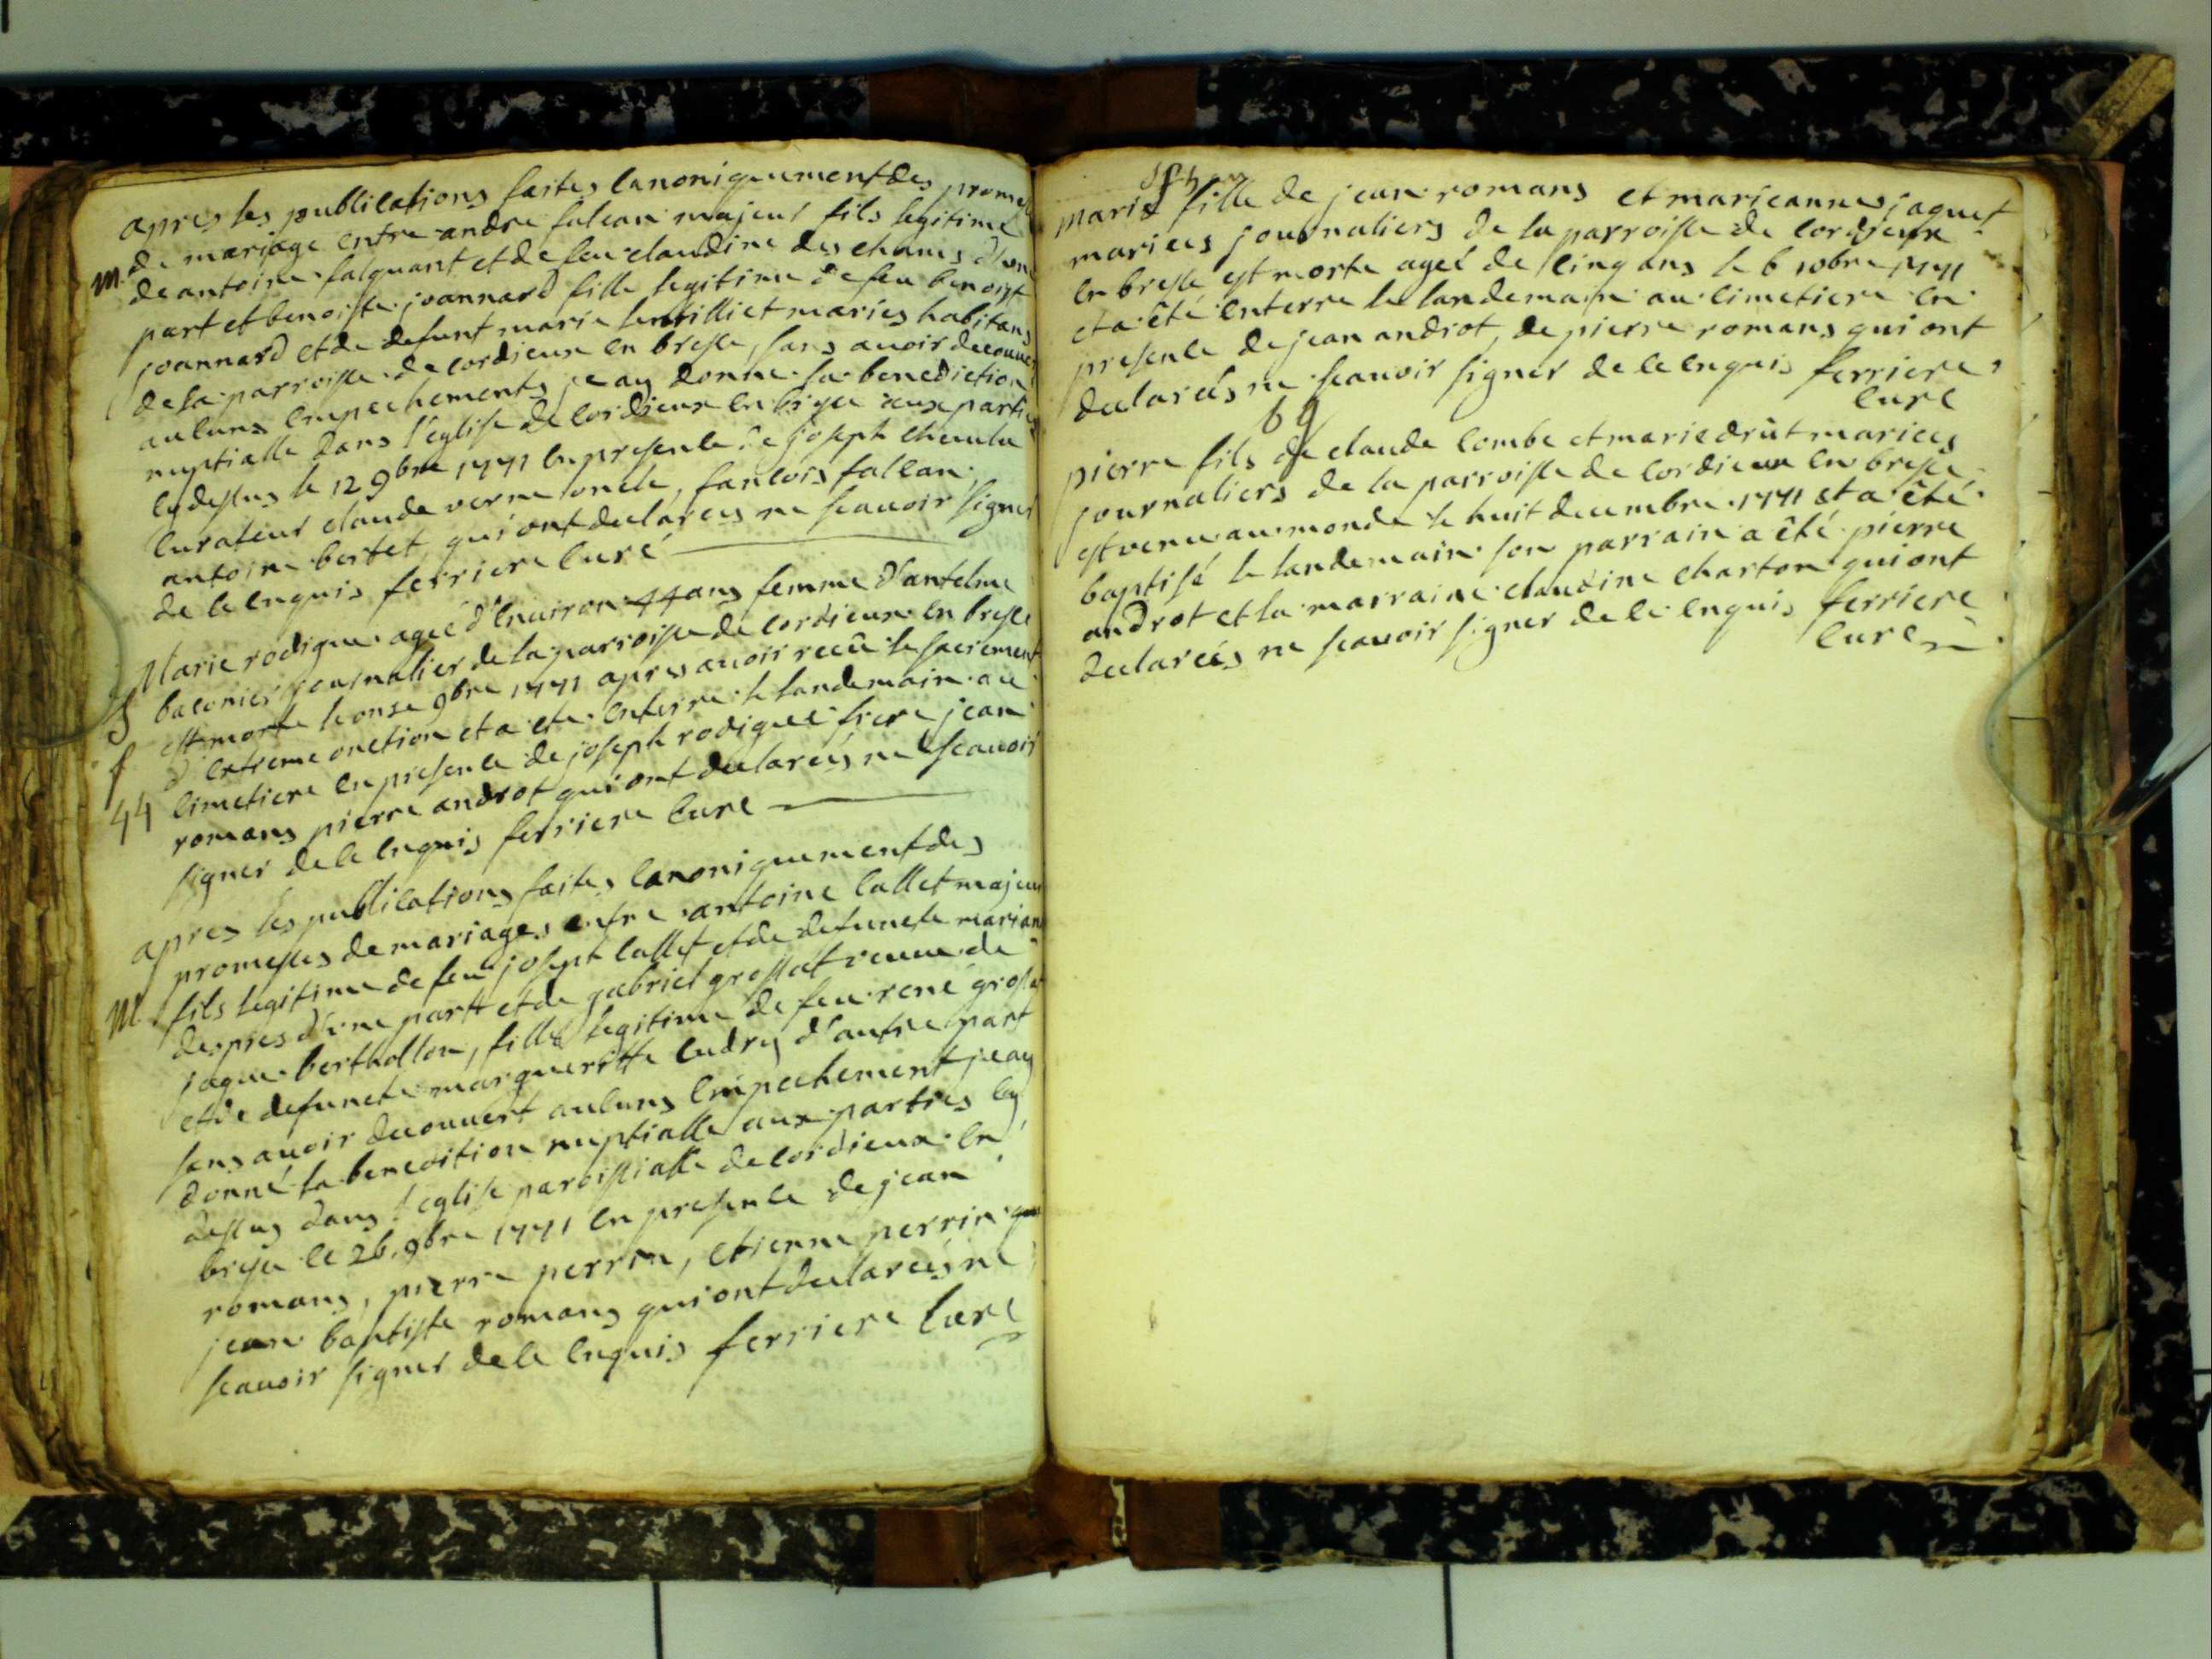 apres les publications faites canoniquement des prome
m. de mariage entre andre falcan majeur fils legitime
de antoine falquant et de feu claudine des champs d'une
part et benoiste joannard fille legitime de feu benoist
joannard et de defunt marie maries habitans
de la parroisse de cordieux en bresse, sans avoir decouver
aucuns empechements jeay donne la benediction
nuptialle dans l'eglise de cordieux en bresse aux parties
cy dessus le 12 9bre 1771 en presence de joseph
curateur claude verne oncle, fancois falcan,
antoine bertet qui ont declarees ne scavoir signer
de ce enquis ferriere curé
Marie rodigue agee d'environ 44 ans femme d'antelme
S baconier journalier de la parroisse de cordieux en bresse
est morte le onse 9bre 1771 apres avoir recû le sacrement
f d'extreme onction et a ete enterre le landemain au
44 cimetiere en presence de joseph rodigue frere jean
romans pierre androt qui ont declarees ne scavoir
signer de ce enquis ferriere cure
apres les publications faites canoniquement des
promesses de mariages entre antoine callet majeur
m. fils legitime de feu joseph callet et de defuncte marian
despres d'une part et de gabriel grossat veuve de
jaque berthollon, fille legitime de feu rené grossat
et de defuncte margueritte cudry d'autre part
sans avoir decouvert aucuns empechement jeay
donné la benedition nuptialle aux parties cy
dessus dans l'eglise paroissialle de cordieux en
bresse le 26. 9bre 1771 en presence de jean
romans, pierre perrin, etienne perrin
jean baptiste romans qui ont declarees ne
scavoir signer de ce enquis ferriere cure
marie fille de jean romans et marieanne jaquet
mariees journaliers de la parroisse de cordieux
en bresse est morte ageé de cinq ans le 6 10bre 1771
et a êté enterre le landemain au cimetiere en
presence de jean androt, de pierre romans qui ont
declareés ne scavoir signer de ce enquis ferriere
cure
b g
pierre fils de claude combe et marie drût mariees
journaliers de la parroisse de cordieux en bresse
est venu au monde le huit decembre 1771 et a êté
baptisé le landemain son parrain a êté pierre
androt et la marraine claudine charton qui ont
declareés ne scavoir signer de ce enquis ferriere
cure